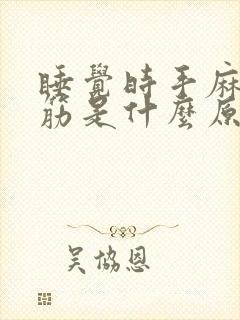 睡覺時手麻
筋是什麼原
吳協恩